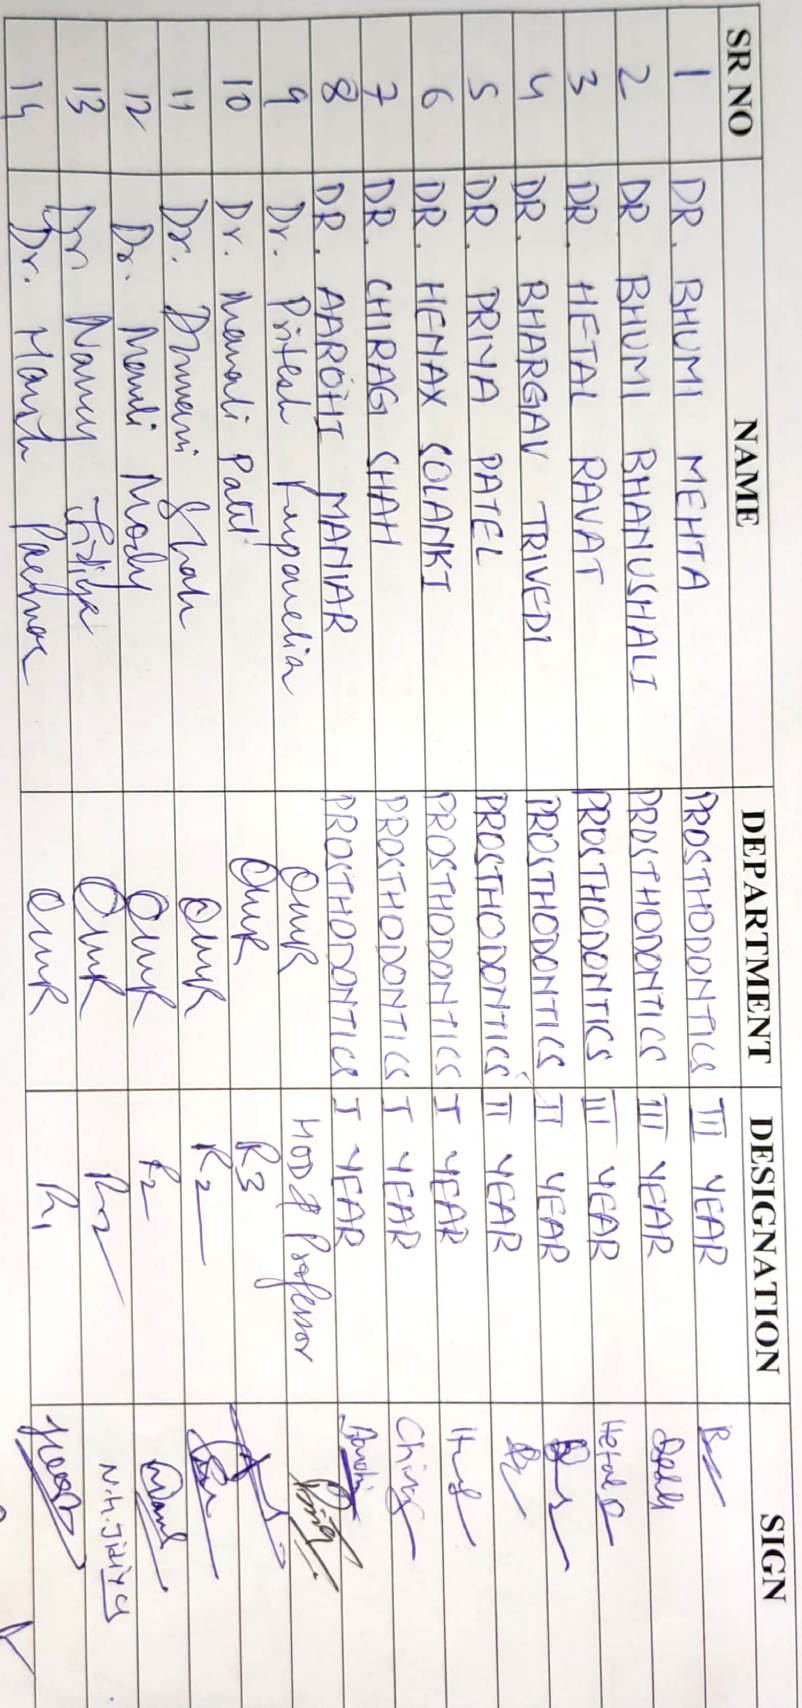 SR NO NAME DEPARTMENT DESIGNATION SIGN
1 DR. BHUMI MEHTA PROSTHODONTICS III YEAR
2 DR BHUMI BHANUSHALI PROSTHODONTICS III YEAR
3 DR. HETAL RAVAT PROSTHODONTICS III YEAR Hetal R
4 DR. BHARGAV TRIVEDI PROSTHODONTICS II YEAR
5 DR. PRIYA PATEL PROSTHODONTICS II YEAR
6 DR. HENAX SOLANKI PROSTHODONTICS I YEAR
7 DR. CHIRAG SHAH PROSTHODONTICS I YEAR Chirag
8 DR. AAROHI MANIAR PROSTHODONTICS I YEAR Aarohi
9 Dr. Pritesh OMR HOD & Professor
10 Dr. Manali Patel OMR R3
11 Dr. Shah OMR R2
12 Dr. Mody OMR R2
13 Dr Nancy Jidiya OMR R2 N.H.Jidiya
14 Dr. OMR R1